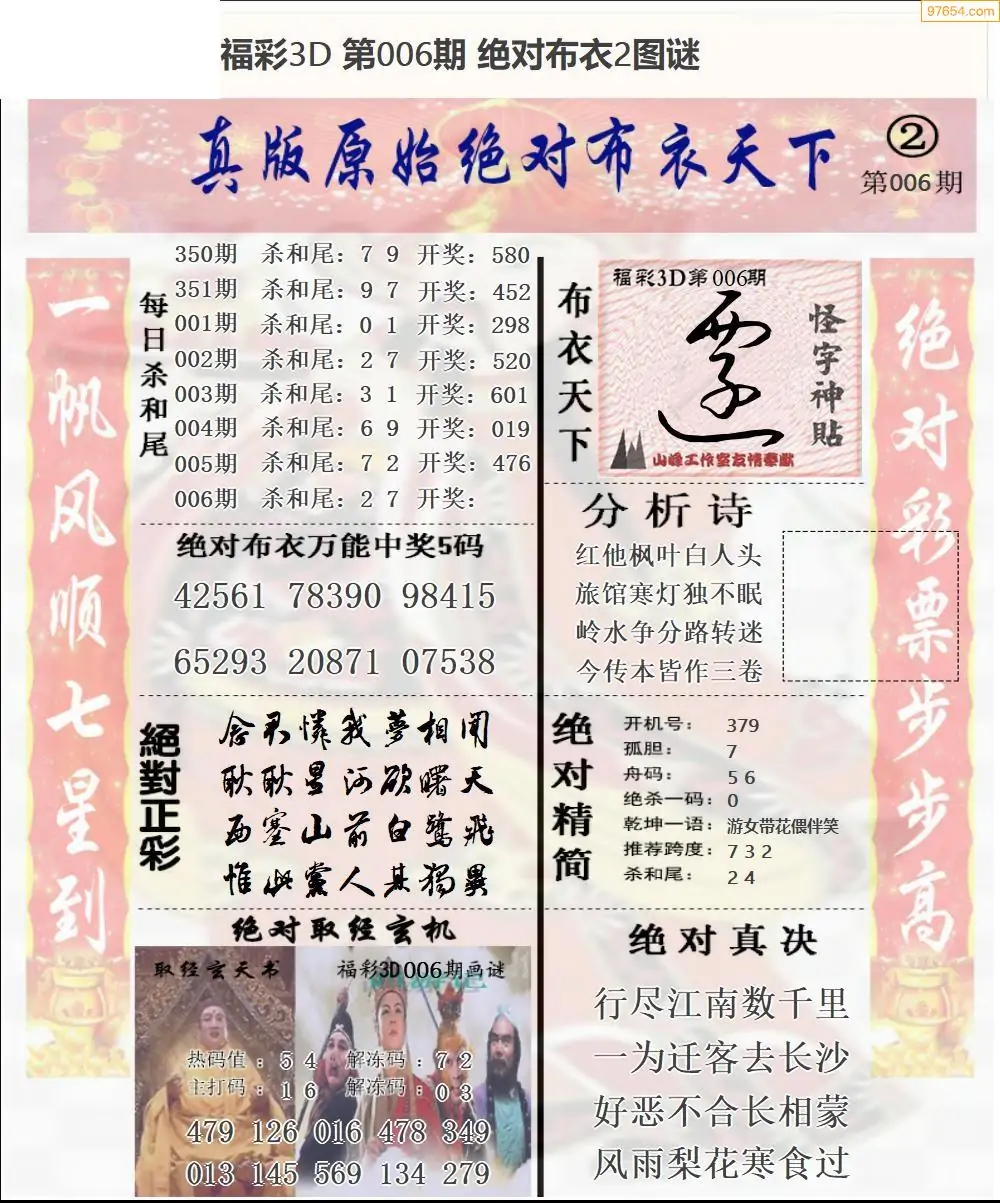 97654.com
福彩3D 第006期 绝对布衣2图谜
真版原始绝对布衣天下
②
第006期
一帆风顺七星到
每日杀和尾
350期 杀和尾：7 9 开奖：580
351期 杀和尾：9 7 开奖：452
001期 杀和尾：0 1 开奖：298
002期 杀和尾：2 7 开奖：520
003期 杀和尾：3 1 开奖：601
004期 杀和尾：6 9 开奖：019
005期 杀和尾：7 2 开奖：476
006期 杀和尾：2 7 开奖：
绝对布衣万能中奖5码
42561 78390 98415
65293 20871 07538
絕對正彩
念君憐我夢相聞
耿耿星河欲曙天
西塞山前白鷺飛
惟此黨人其獨異
绝对取经玄机
取经玄天书
福彩3D006期画谜
热码值：5 4 解冻码：7 2
主打码：1 6 解冻码：0 3
479 126 016 478 349
013 145 569 134 279
布衣天下
福彩3D第006期
怪字神貼
山峰工作室友情奉献
分析诗
红他枫叶白人头
旅馆寒灯独不眠
岭水争分路转迷
今传本皆作三卷
绝对精简
开机号：379
孤胆：7
舟码：5 6
绝杀一码：0
乾坤一语：游女带花偎伴笑
推荐跨度：7 3 2
杀和尾：2 4
绝对真决
行尽江南数千里
一为迁客去长沙
好恶不合长相蒙
风雨梨花寒食过
绝对彩票步步高